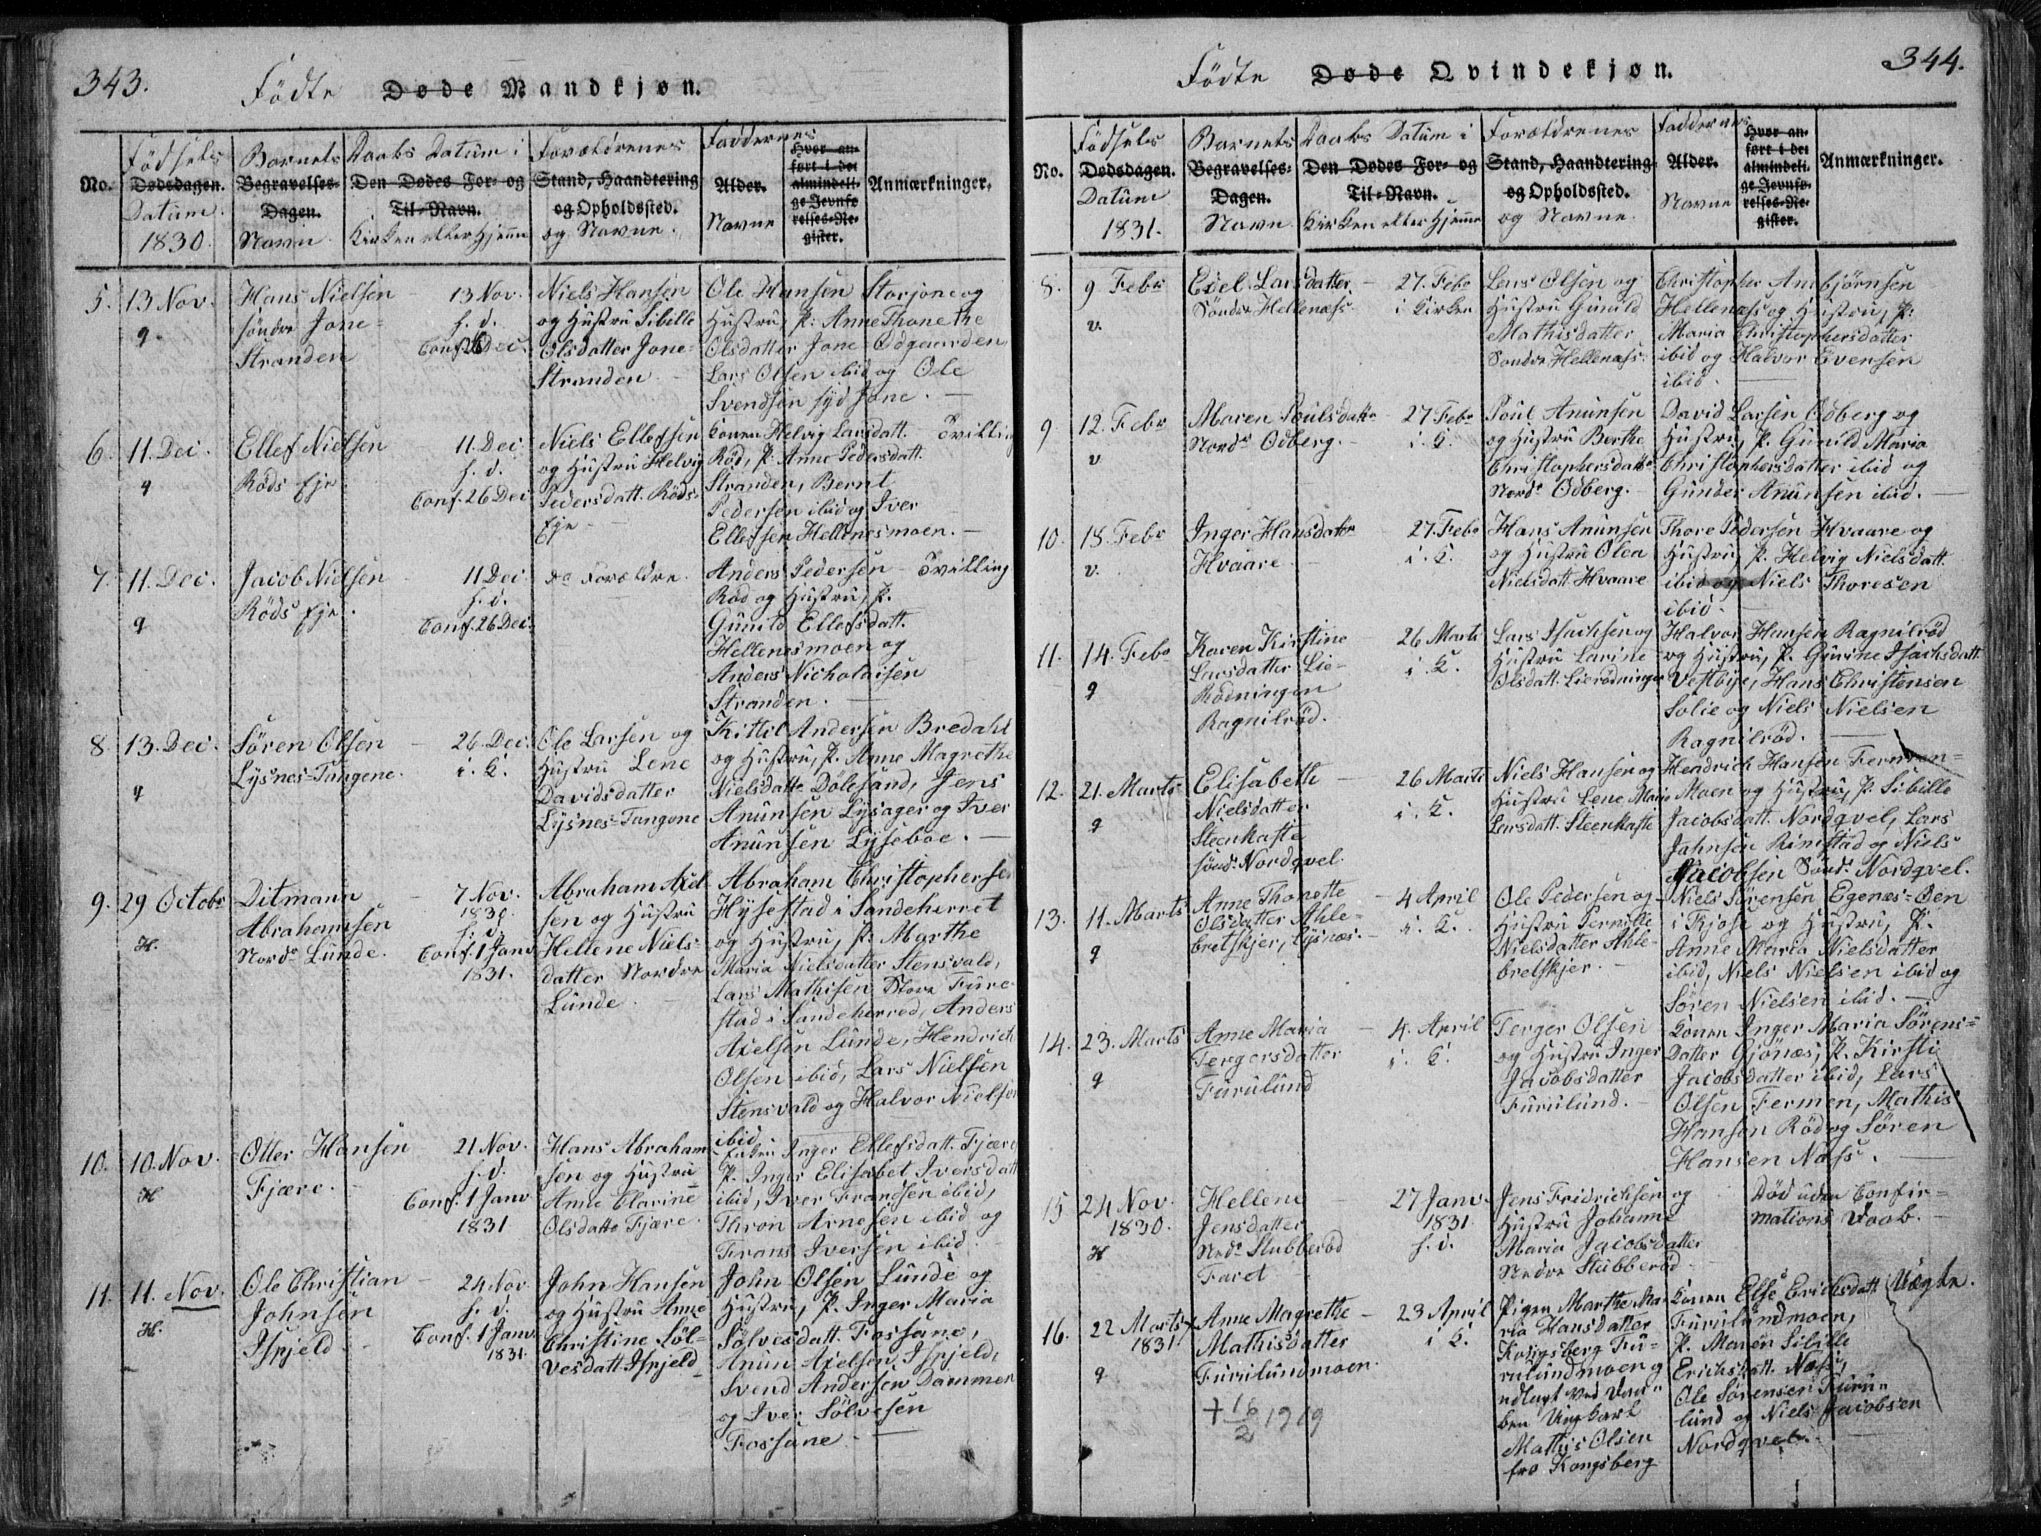 343.
Födte Døde Mandkjøn.
No.
Födsels
Dødsdagen.
Datum
1830.
Barnets
Begravelses-
Dagen.
Navn
Daabs Datum i
Den Dødes For- og
Til-Navn.
Kirken eller Hjemme
Forældrenes
Stand, Haandtering
og Opholdssted.
og Navne.
Faddernes
Alder.
Navne
Hvor an-
ført i det
almindeli-
ge Jevnfø-
relses-Re-
gister.
Anmærkninger.
5. 13 Nov.
Hans Nielsen
söndre Jone-
Stranden
13 Nov.
h. d.
Conf. 26 Dec.
Niels Hansen
og Hustru Sibille
Olsdatter Jone-
Stranden
Ole Hansen Storjone og
Hustru, P. Anne Thonethe
Olsdatter Jone-Odgaarden
Lars Olsen ibid og Ole
Svendsen syd Jone.
6. 11. Dec.
Ellef Nielsen
Röds Eje
11. Dec
h. d.
Conf. 26 Dec
Niels Ellefsen
og Hustru Helvig
Pedersdatt. Röds-
Eje
Konen Helvig Larsdatt.
Röd, P. Anne Pedersdatt.
Stranden, Bernt
Pedersen ibid og Iver
Ellefsen Hellenesmoen.
Tvilling
7. 11. Dec.
Jacob Nielsen
Röds Eje.
11 Dec.
h. d.
Conf. 26 Dec.
do Forældre.
Anders Pedersen
Röd og Hustru, P.
Gunild Ellefsdatt.
Hellenesmoen og
Anders Nicholaisen
Stranden.
Tvilling
8 13. Dec.
Sören Olsen
Lysnes-Tangene.
26. Dec.
i. K.
Ole Larsen og
Hustru Lene
Davidsdatter
Lysnes-Tangene
Kittil Andersen Bredahl
og Hustru, P. Anne Magrethe
Nielsdatte Dölesund, Jens
Anunsen Lysager og Iver
Anunsen Lyseboe.
9. 29 Octobr
H.
Ditmann
Abrahamsen
Nordr Lunde.
7 Nov.
1830.
h. d.
Conf. 1 Janv
1831.
Abraham Axel
sen og Hustru
Hellene Niels-
datter Nordre
Lunde
Abraham Christophersen
Hysestad i Sandeherret
og Hustru, P. Marthe
Maria Nielsdatter Stensvald,
Lars Mathisen Store Fure-
stad i Sandeherred, Anders
Axelsen Lunde, Hendrich
Olsen ibid, Lars Nielsen
Stensvald og Halvor Nielsen
ibid
10. 10. Nov.
H
Otter Hansen
Fjære.
21 Nov.
h. d.
Conf. 1 Janv
1831
Hans Abraham
sen og Hustru
Anne Clarine
Olsdatte Fjære.
Inger Ellefsdatt. Fjære
P. Inger Elisabet Iversdatt
ibid, Iver Frandsen ibid,
Thron Arnesen ibid og
Frans Iversen ibid
11. 11. Nov.
H.
Ole Christian
Johnsen
Ispjeld
24 Nov
h. d.
Conf. 1 Janv
1831
John Hansen
og Hustru Anne
Christine Söl-
vesdatt Ispjeld
John Olsen Lunde og
Hustru, P. Inger Maria
Sölvesdatt. Fossane,
Anun Axelsen Ispjeld,
Svend Andersen Dammen
og Iver Sölvesen
Fossane
344.
Födte Døde Qvindekjøn.
No.
Födsels
Dødsdagen.
Datum
1831.
Barnets
Begravelses-
Dagen.
Navn
Daabs Datum i
Den Dødes For- og
Til-Navn.
Kirken eller Hjemme
Forældrenes
Stand, Haandtering
og Opholdssted.
og Navne.
Faddernes
Alder.
Navne
Hvor an-
ført i det
almindeli-
ge Jevnfø-
relses-Re-
gister.
Anmærkninger.
8. 9 Febr
v.
Edel Larsdatter
Söndre Hellenæss
27. Febr
i Kirken
Lars Olsen og
Hustru Gunild
Mathisdatter
Sondre Hellenæss.
Christopher Ambjörnsen
Hellenæss og Hustru, P.
Maria Christophersdatter
ibid og Halvor Evensen
ibid.
9 12. Febr
v
Maren Poulsdatte
Nordr Odberg.
27 Febr
i. K.
Poul Anunsen
og Hustru Berthe
Christophersdatte
Nordr Odberg.
David Larsen Odberg og
Hustru, P. Gunild Maria
Christophersdatter ibid og
Gunder Anunsen ibid.
10. 18. Febr
v.
Inger Hansdatte
Hvaare
27. Febr
i. K.
Hans Anunsen
og Hustru Olea
Nielsdatt Hvaare
Thore Pedersen Hvaare og
Hustru, P. Helvig Nielsdatt.
ibid og Niels Thoresen
ibid.
11. 14. Febr
Karen Kirstine
Larsdatter Lie-
Rödningen
Ragnilröd.
26 Marts
i. K.
Lars Isachsen og
Hustru Larine
Olsdatt. Lierödningen
Halvor Hansen Ragnilröd
og Hustru, P. Gurine Isachsdatt.
Vestbye, Hans Christensen
Solie og Niels Nielsen
Ragnilröd.
12. 21. Marts
Elisabeth
Nielsdatter
Steenkaste
sönd. Nordqvel.
26 Marts
i. K.
Niels Hansen og
Hustru Lene Marie
Larsdatt. Steenkaste
Hendrich Hansen Fermen-
Moen og Hustru, P. Sibille
Jacobsdatt. Nordqvel, Lars
Jahnsen Rimstad og Niels
Jacobsen Sönd. Nordqvel.
13. 11. Marts
Anne Thonette
Olsdatter Ahle-
bretskjer, Lysnæs.
4 April
i. K.
Ole Pedersen og
Hustru Pernille
Nielsdatter Ahle-
bretskjer.
Niels Sörensen Egenæs-Öen
i Kjose og Hustru, P.
Anne Maria Nielsdatter
ibid, Niels Nielsen ibid og
Sören Nielsen ibid.
14. 23. Marts
Anne Maria
Tergersdatter
Furulund
4. April
i. K.
Terger Olsen
og Hustru Inger
Jacobsdatter
Furulund.
Konen Inger Maria Sörens-
Datter Gjönæs, P. Kirsti
Jacobsdatter ibid, Lars
Olsen Fermen, Mathis
Hansen Röd og Sören
Hansen Næss.
15 24 Nov.
1830.
H
Hellene
Jensdatter
Nedr Stubberöd
27 Janv.
1831
h. d.
Jens Fridrichsen og
Hustru Johanne
Maria Jacobsdatter
Nedre Stubberöd
Död uden Confir-
mations Daab.
16. 22 Marts
1831.
Anne Magrethe
Mathisdatter
Furulundmoen.
+ 16/2 1919
23 April
i K.
Pigen Marthe Ma-
ria Hansdatter
Kongsberg Fu-
rulundmoen og
udlagt ved Daa-
ben Ungkarl
Mathis Olsen
fra Kongsberg
Konen Else Erichsdatt
Furulundmoen,
P. Maren Sibille
Erichsdatt. Næss,
Ole Sörensen Furu-
lund og Niels Jacobsen
Nordqvel.
Uægte.